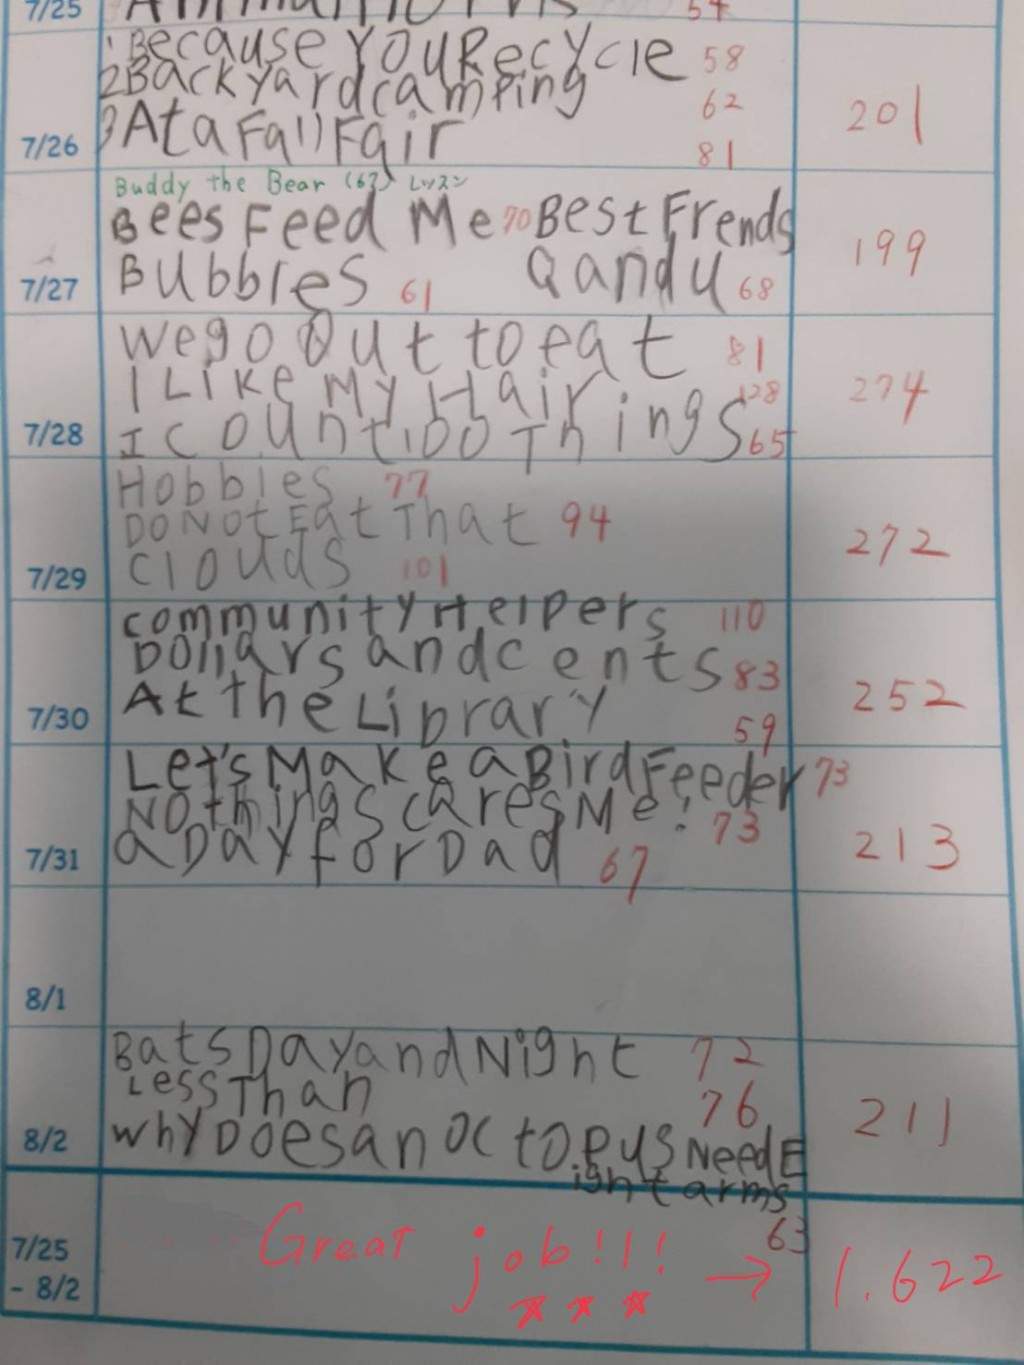 7/25 54
1 Because YOU Recycle 58
2 Backyard camping 62
3 At a Fall Fair 81
7/26 201
Buddy the Bear (67) レッスン
Bees Feed Me 70 Best Frends
Bubbles 61 Q and U 68
7/27 199
We go Out to eat 81
I Like My Hair 128
I Count 100 Things 65
7/28 274
Hobbies 77
Do Not Eat That 94
Clouds 101
7/29 272
Community Helpers 110
Dollars and cents 83
At the Library 59
7/30 252
Let's Make a Bird Feeder 73
Nothing Scares Me! 73
a Day for Dad 67
7/31 213
8/1
Bats Day and Night 72
Less Than 76
8/2 211
Why Does an Octopus Need E
ight arms
63
7/25 - 8/2 Great job!!! → 1.622